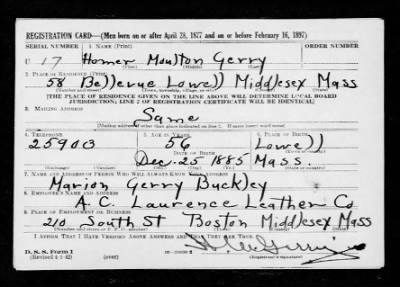 REGISTRATION CARD—(Men born on or after April 28, 1877 and on or before February 16, 1897)
SERIAL NUMBER 1. NAME (Print) ORDER NUMBER
U 17 Homer Moulton Gerry
2. PLACE OF RESIDENCE (Print)
58 Bellevue Lowell Middlesex Mass
[THE PLACE OF RESIDENCE GIVEN ON THE LINE ABOVE WILL DETERMINE LOCAL BOARD
JURISDICTION; LINE 2 OF REGISTRATION CERTIFICATE WILL BE IDENTICAL]
3. MAILING ADDRESS
Same
[Mailing address if other than place indicated on line 2. If same insert word same]
4. TELEPHONE 5. AGE IN YEARS 6. PLACE OF BIRTH
25903 56 Lowell
DATE OF BIRTH
Dec. 25 1885 Mass.
7. NAME AND ADDRESS OF PERSON WHO WILL ALWAYS KNOW YOUR ADDRESS
Marion Gerry Buckley
8. EMPLOYER'S NAME AND ADDRESS
A.C. Laurence Leather Co
9. PLACE OF EMPLOYMENT OR BUSINESS
210 South St Boston Middlesex Mass
I AFFIRM THAT I HAVE VERIFIED ABOVE ANSWERS AND THAT THEY ARE TRUE.
D. S. S. Form 1
(Revised 4-1-42)
(Registrant's signature)